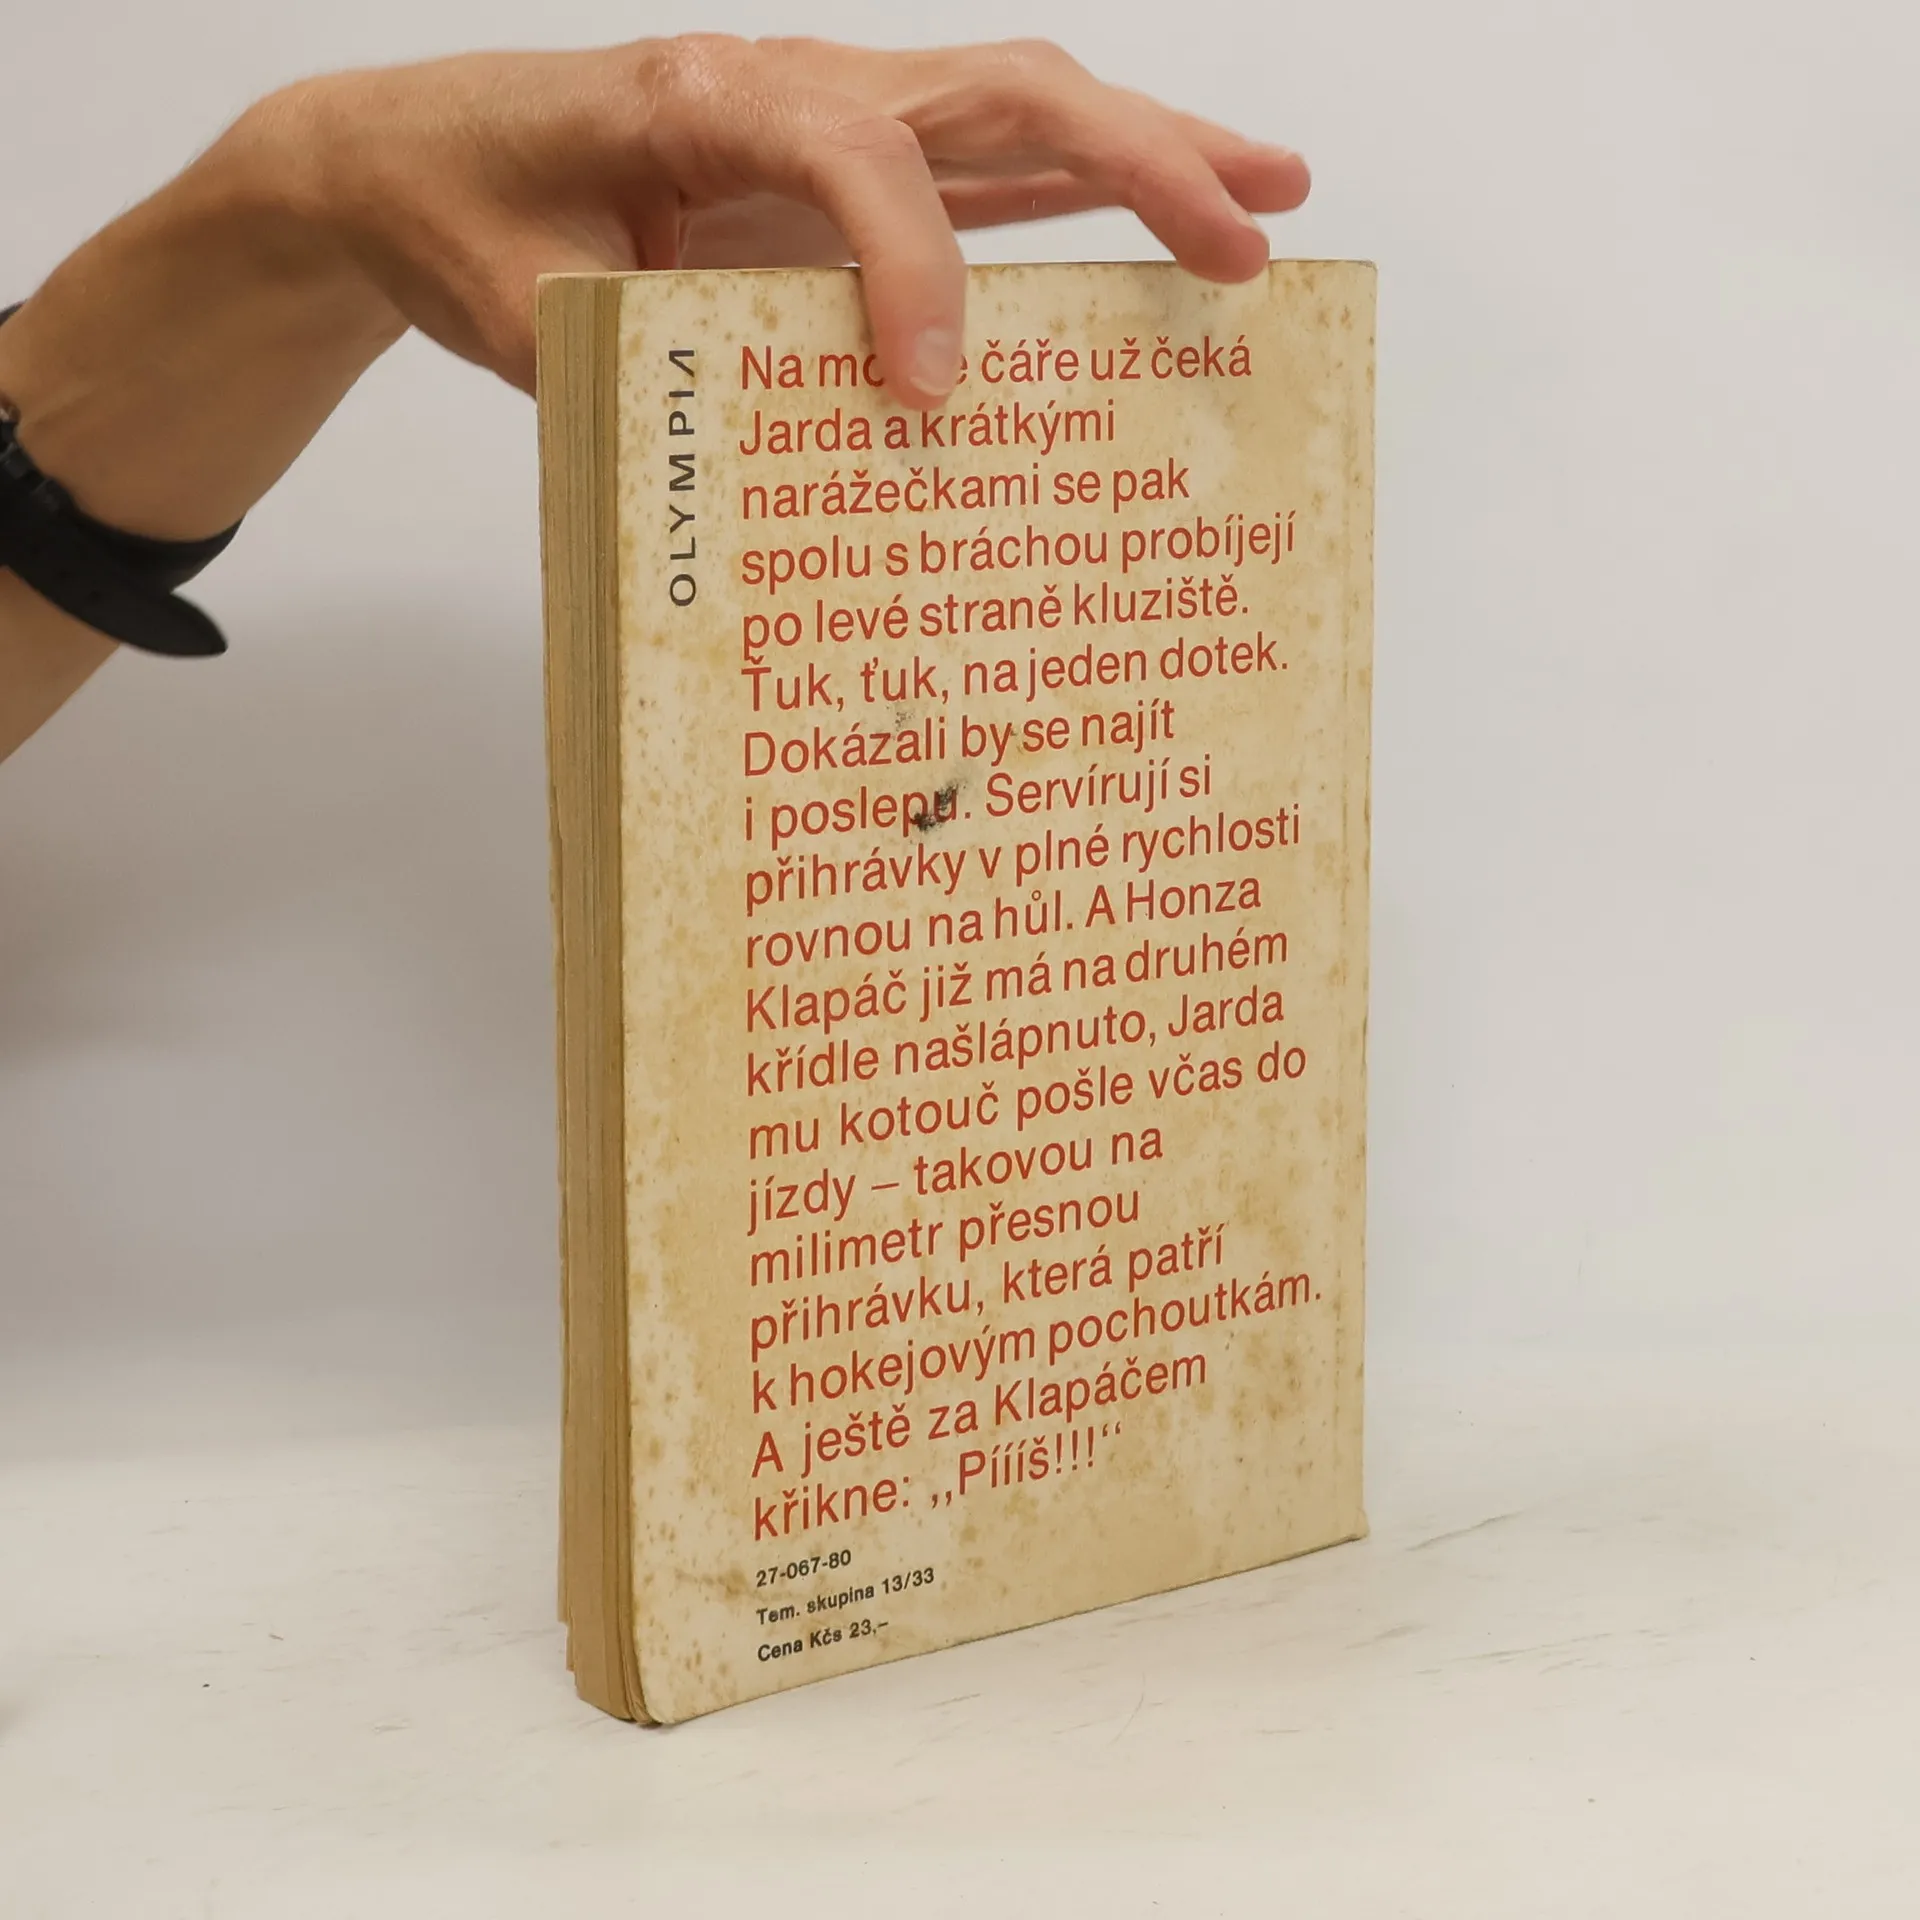 OLYMPIA
Na čáře už čeká
Jarda a krátkými
narážečkami se pak
spolu s bráchou probíjejí
po levé straně kluziště.
Ťuk, ťuk, na jeden dotek.
Dokázali by se najít
i poslepu. Servírují si
přihrávky v plné rychlosti
rovnou na hůl. A Honza
Klapáč již má na druhém
křídle našlápnuto, Jarda
mu kotouč pošle včas do
jízdy – takovou na
milimetr přesnou
přihrávku, která patří
k hokejovým pochoutkám.
A ještě za Klapáčem
křikne: ,,Píííš!!!“
27-067-80
Tem. skupina 13/33
Cena Kčs 23,–